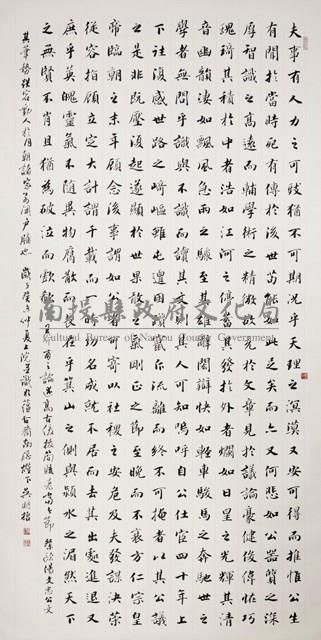 夫事有人力之可致猶不可期況乎天理之溟漠又安可得而推惟公生
有聞於當時死有傳於後世苟能如此足矣而亦又何悲如公器質之深
厚智識之高遠而輔學術之精微故充於文章見於議論豪健俊偉怪巧
瑰琦其積於中者浩如江河之停蓄其發於外者爛如日星之光輝其清
音幽韻淒如飄風急雨之驟至其雄辭閎辯快如輕車駿馬之奔馳世之
學者無問乎識與不識而讀其文則其人可知嗚呼自公仕宦四十年上
下往復感世路之崎嶇雖屯邅困躓竄斥流離而終不可掩者以其公議
之是非既壓復起遂顯於世果敢之氣剛正之節至晚而不衰方仁宗皇
帝臨朝之末年顧念後事謂如公者可寄以社稷之安危及夫發謀決策
從容指顧立定大計謂千載而一時功名成就不居而去其出處進退又
庶乎英魄靈氣不隨異物腐散而長在乎箕山之側與潁水之湄然天下
之無賢不肖且猶為涕泣而歔欷 祭歐陽文忠公文
南投縣政府文化局
Cultural Bureau of Nantou County Government